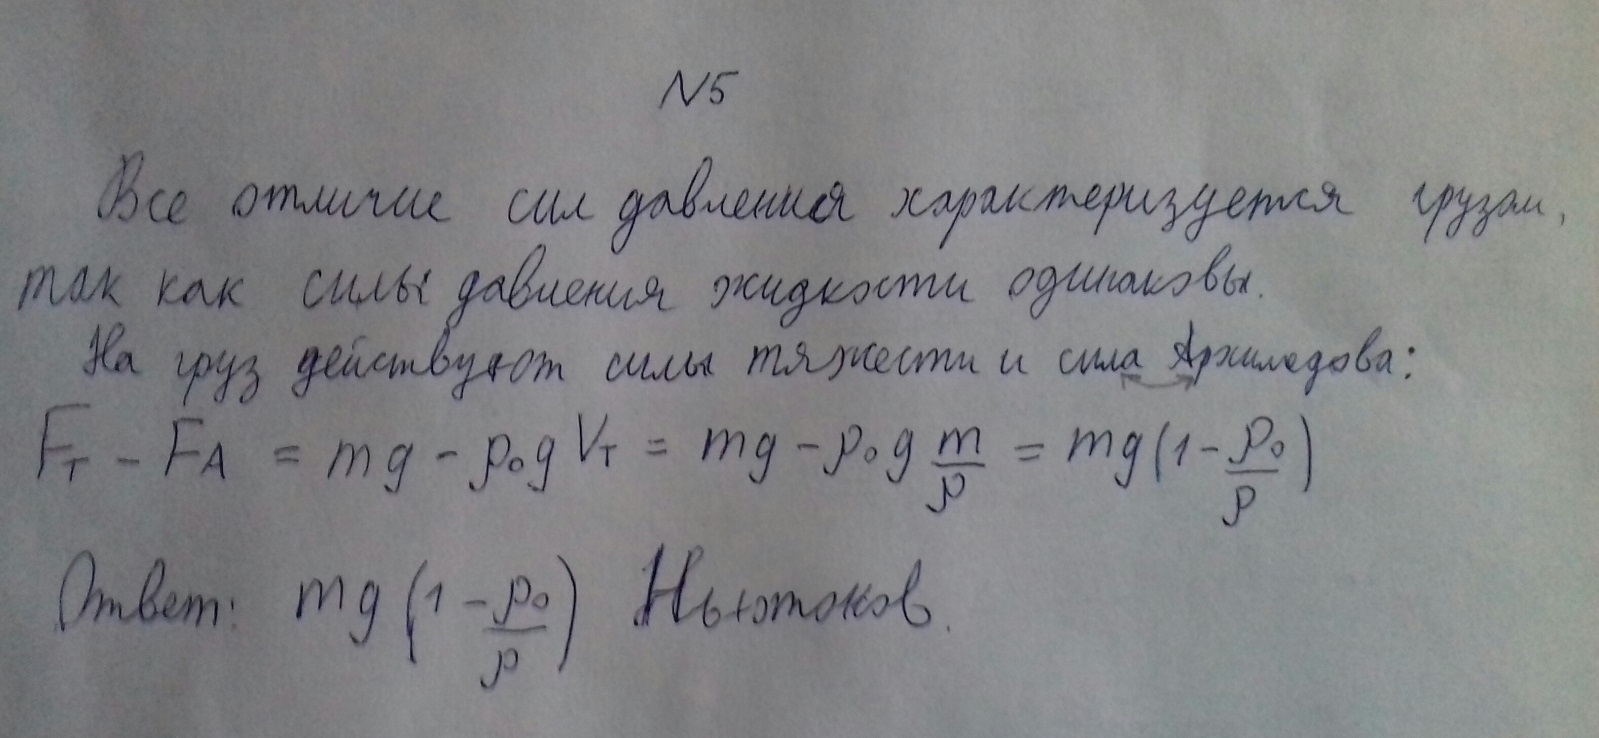 N5
Все отличие сил давления характеризуется грузом,
так как силы давления жидкости одинаковы.
На груз действуют силы тяжести и сила Архимедова:
Fт - FA = mg - ρ₀gVт = mg - ρ₀g m/ρ = mg(1 - ρ₀/ρ)
Ответ: mg(1 - ρ₀/ρ) Ньютонов.